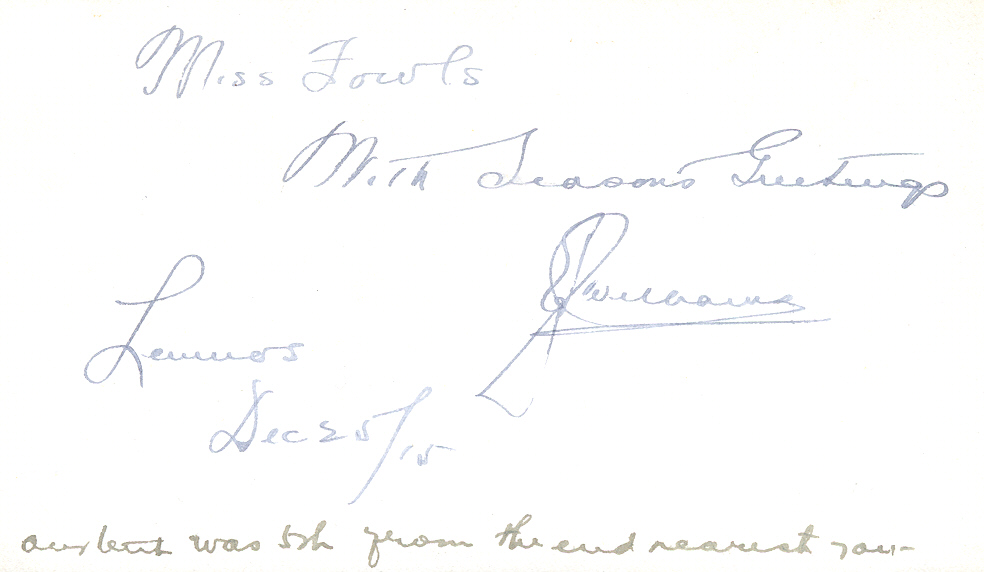 Miss Fowls
With Seasons Greetings
Williams
Lemnos
Dec 25/15
our tent was 5th from the end nearest you-